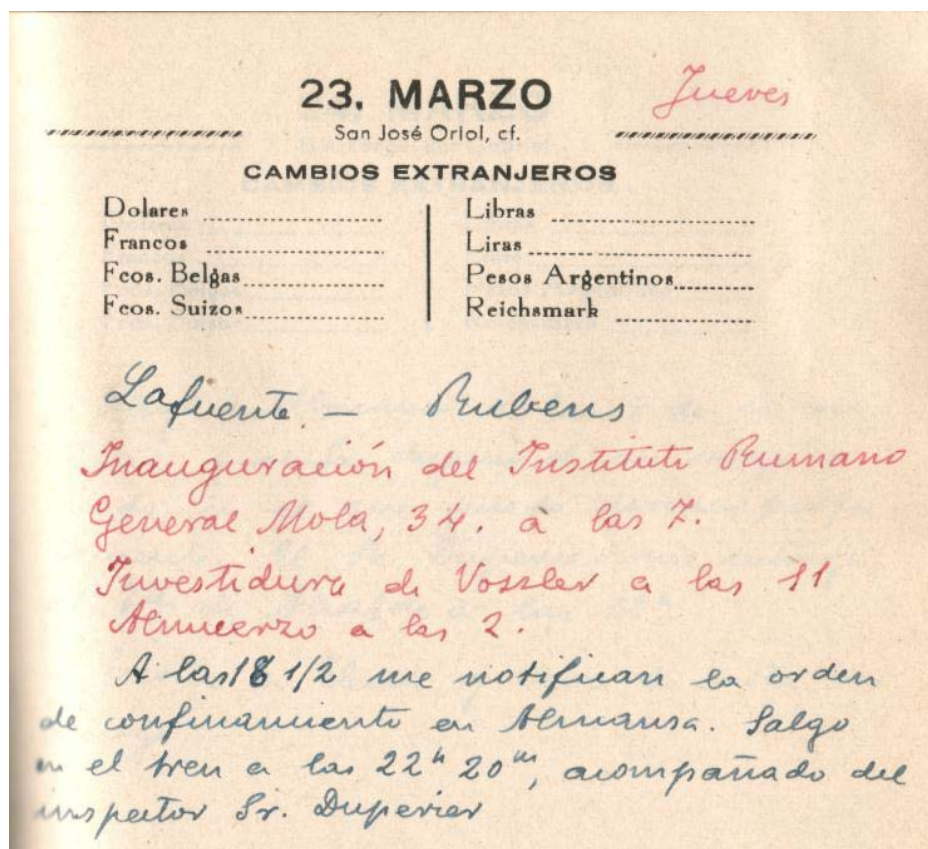 23. MARZO
Jueves
San José Oriol, cf.
CAMBIOS EXTRANJEROS
Dolares
Francos
Fcos. Belgas
Fcos. Suizos
Libras
Liras
Pesos Argentinos
Reichsmark
Lafuente. — Rubens
Inauguración del Instituto Rumano
General Mola, 34. a las 7.
Investidura de Vossler a las 11
Almuerzo a las 2.
A las 18 1/2 me notifican la orden
de confinamiento en Almansa. Salgo
en el tren a las 22h 20m, acompañado del
inspector Sr. Duperier